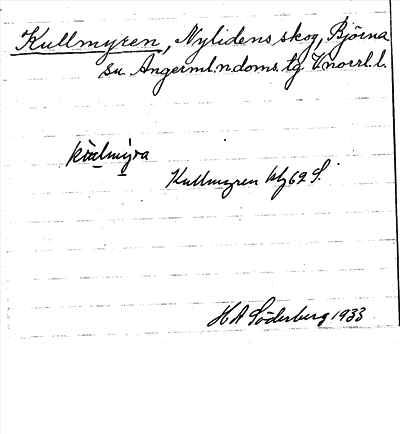 Kullmyren, Nylidens skog, Björna
sn. Ångerml. n. doms. tg V.norrl. l.
Kullmyren blg 62 S.
H A Söderberg 1933